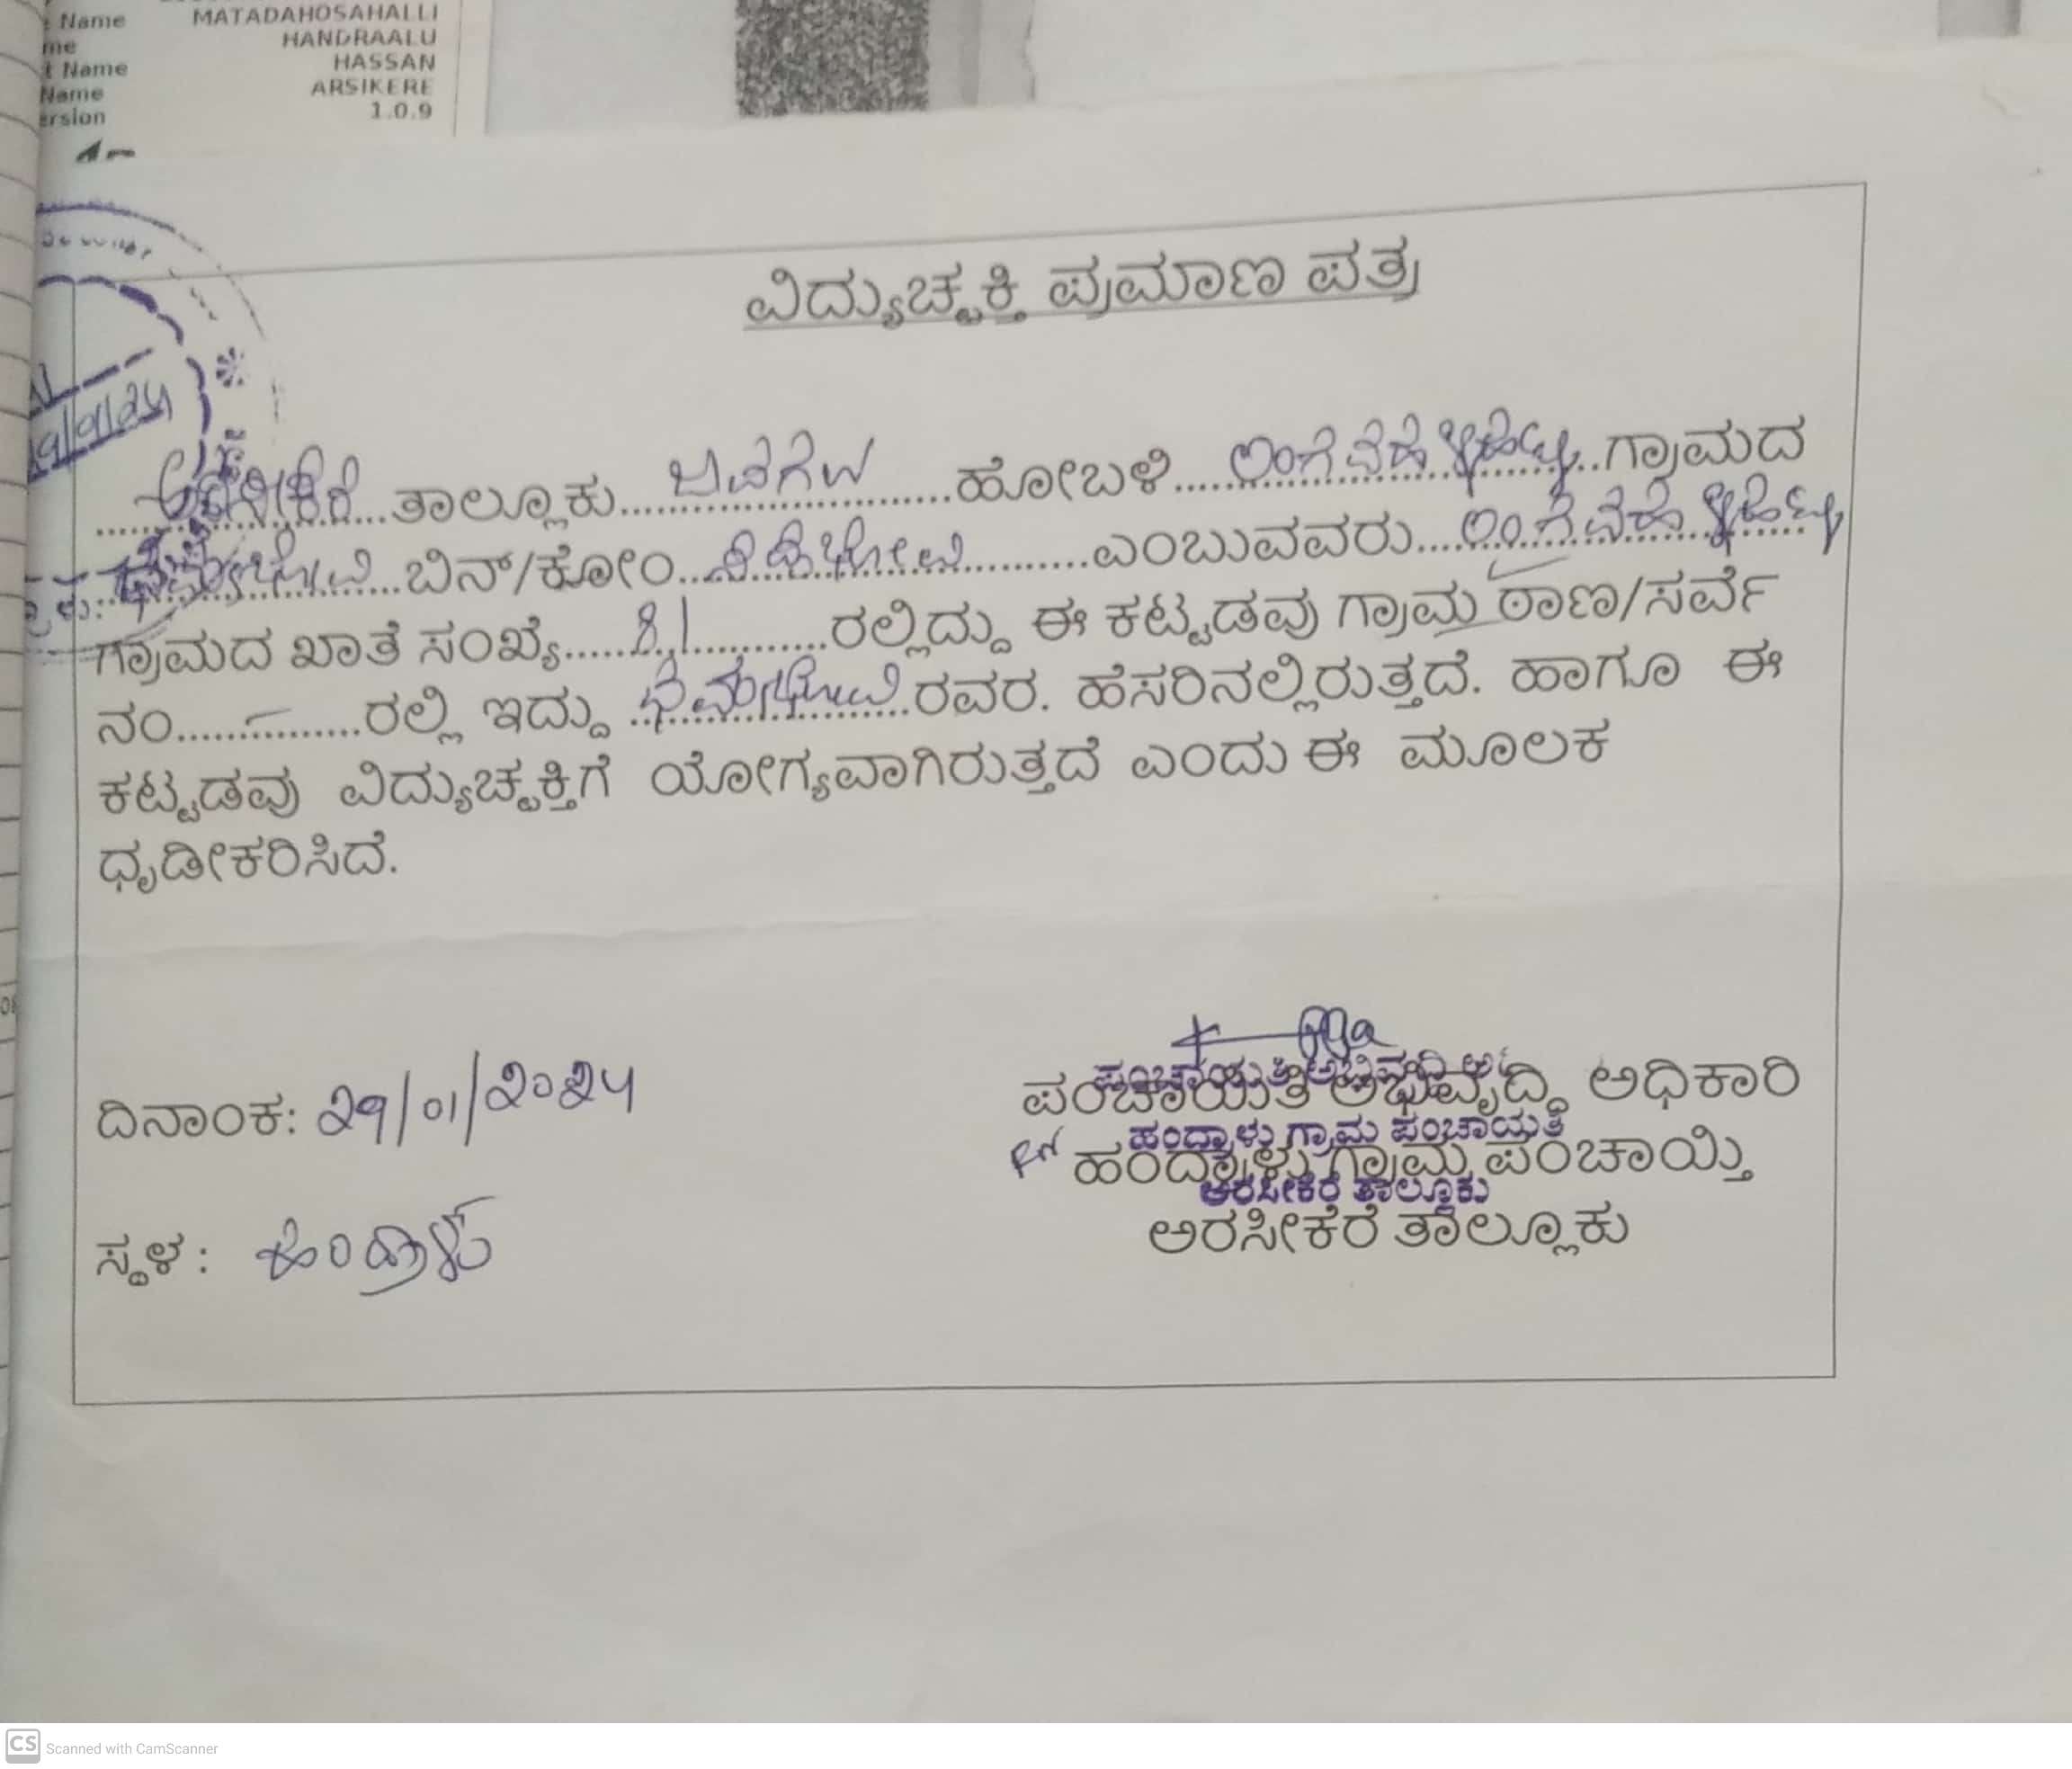 Name MATADAHOSAHALLI
me HANDRAALU
t Name HASSAN
Name ARSIKERE
ersion 1.0.9
ವಿದ್ಯುಚ್ಚಕ್ತಿ ಪ್ರಮಾಣ ಪತ್ರ
ಅರಸೀಕೆರೆ ತಾಲ್ಲೂಕು ಜಾವಗಲ್ ಹೋಬಳಿ ಗ್ರಾಮದ
ಬಿನ್/ಕೋಂ ಎಂಬುವವರು
ಗ್ರಾಮದ ಖಾತೆ ಸಂಖ್ಯೆ 81 ರಲ್ಲಿದ್ದು ಈ ಕಟ್ಟಡವು ಗ್ರಾಮ ಠಾಣ/ಸರ್ವೆ
ನಂ ರಲ್ಲಿ ಇದ್ದು ರವರ. ಹೆಸರಿನಲ್ಲಿರುತ್ತದೆ. ಹಾಗೂ ಈ
ಕಟ್ಟಡವು ವಿದ್ಯುಚ್ಚಕ್ತಿಗೆ ಯೋಗ್ಯವಾಗಿರುತ್ತದೆ ಎಂದು ಈ ಮೂಲಕ
ಧೃಡೀಕರಿಸಿದೆ.
ದಿನಾಂಕ: 29/01/2024
ಪಂಚಾಯಿತಿ ಅಭಿವೃದ್ಧಿ ಅಧಿಕಾರಿ
ಹಂದ್ರಾಳು ಗ್ರಾಮ ಪಂಚಾಯತಿ
ಹಂದ್ರಾಳು ಗ್ರಾಮ ಪಂಚಾಯ್ತಿ
ಅರಸೀಕೆರೆ ತಾಲ್ಲೂಕು
ಅರಸೀಕೆರೆ ತಾಲ್ಲೂಕು
ಸ್ಥಳ : ಹಂದ್ರಾಳು
CS Scanned with CamScanner